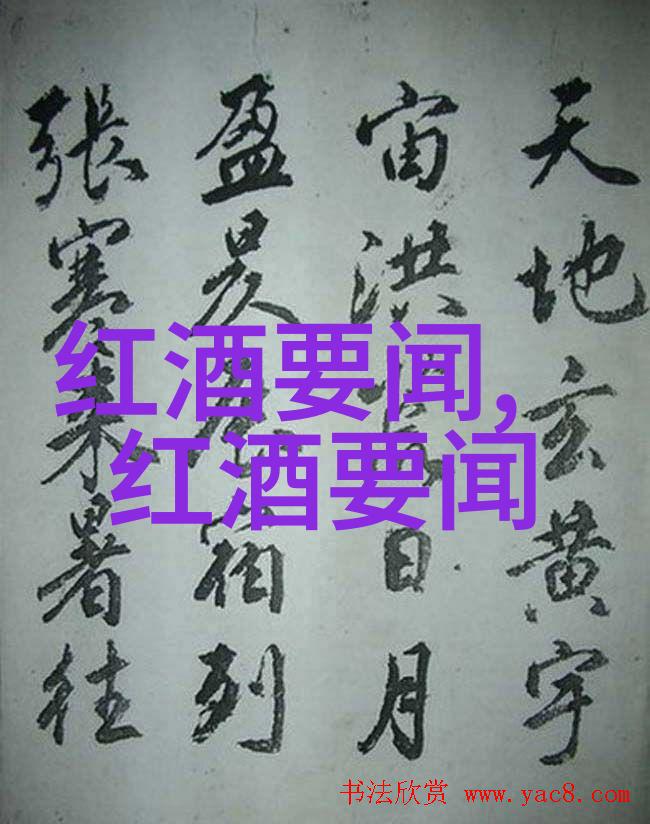 天地玄黄宇
宙洪日月
盈昃宿列
張寒来暑往
红酒要闻,
红酒要闻
书法欣赏 www.yac8.com